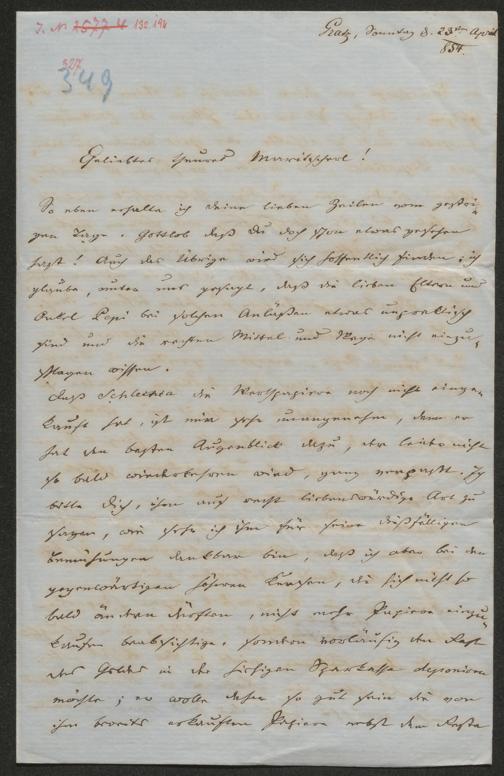 J. N. 2577 4 130.194
Gratz, Sonntag d. 23ten April
854.
327
349
Geliebtes theures Maritscherl!
So eben erhalte ich deine lieben Zeilen vom gestri-
gen Tage. Gottlob daß du doch schon etwas gesehen
hast! Auch das Übrige wird sich hoffentlich finden; ich
glaube, unter uns gesagt, daß die lieben Eltern und
Onkel Pepi bei solchen Anläßen etwas unpraktisch
sind und die rechten Mittel und Wege nicht einzu-
schlagen wissen.
Daß Schlechta die Werthpapiere noch nicht einge-
kauft hat, ist mir sehr unangenehm, denn er
hat den besten Augenblick dazu, der leider nicht
so bald wiederkehren wird, ganz verpaßt. Ich
bitte dich, ihm auf recht liebenswürdige Art zu
sagen, wie sehr ich ihm für seine dießfälligen
Bemühungen dankbar bin, daß ich aber bei den
gegenwärtigen höheren Kursen, die sich nicht so
bald ändern dürften, nicht mehr Papiere einzu-
kaufen beabsichtige, sondern vorläufig den Rest
des Geldes in der hiesigen Sparkasse deponiren
möchte; er wolle daher so gut sein die von
ihm bereits erkauften Papiere nebst dem Reste